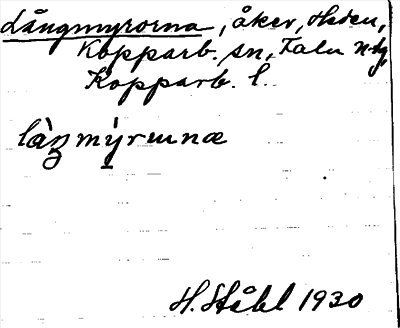 Långmyrorna, åker, Heden,
Kopparb. sn, Falu ndg,
Kopparb. l.
H. Ståhl 1930